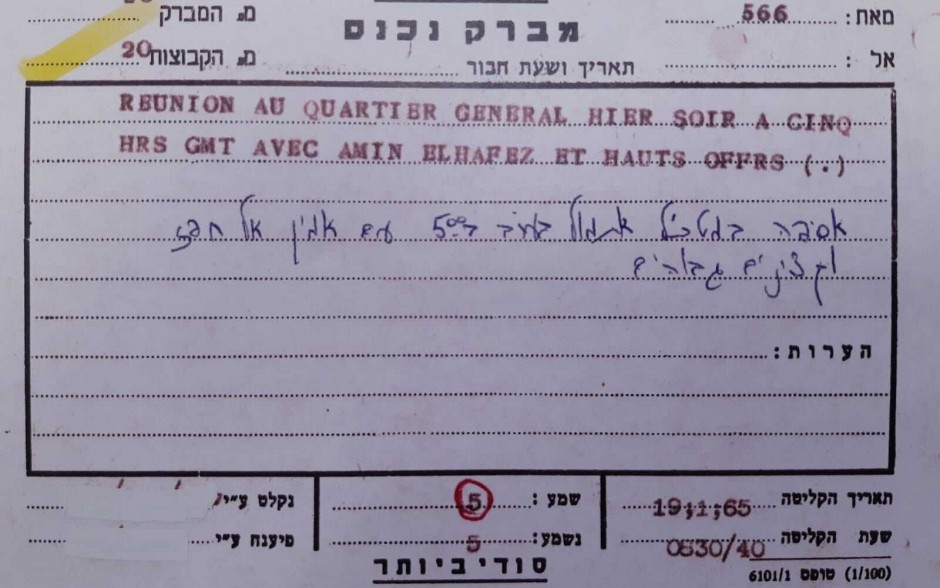 מאת: 566
מברק נכנס
מס, המברק
אל :
תאריך ושעת חבור
מס, הקבוצות 20
REUNION AU QUARTIER GENERAL HIER SOIR A CINQ
HRS GMT AVEC AMIN ELHAFEZ ET HAUTS OFFRS (.)
אסיפה במטכ"ל אתמול בערב ב־500 עם אמין אל חפז
וקצינים גבוהים
הערות :
תאריך הקליטה 19;1;65
שמע : 5
נקלט ע״י
שעת הקליטה 0830/40
נשמע: 5
פיענח ע״י
סודי ביותר
(1/100) טופס 6101/1